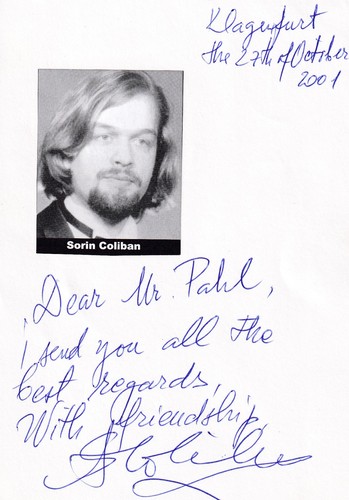 Klagenfurt
the 27th of October
2001
Sorin Coliban
Dear Mr. Pahl,
I send you all the
best regards,
With friendship,
SColiban